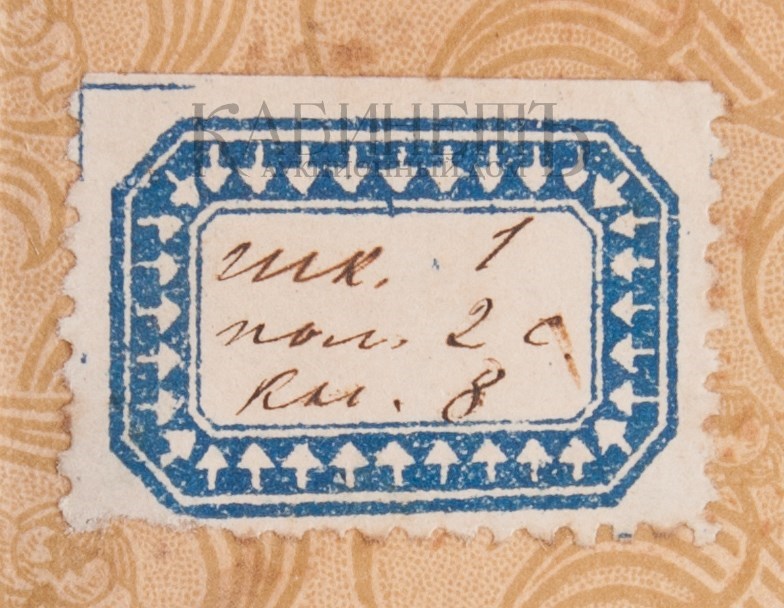 КАБИНЕТЪ
АУКЦИОННЫЙ ДОМ
шк. 1
пол. 2 с
кн. 8